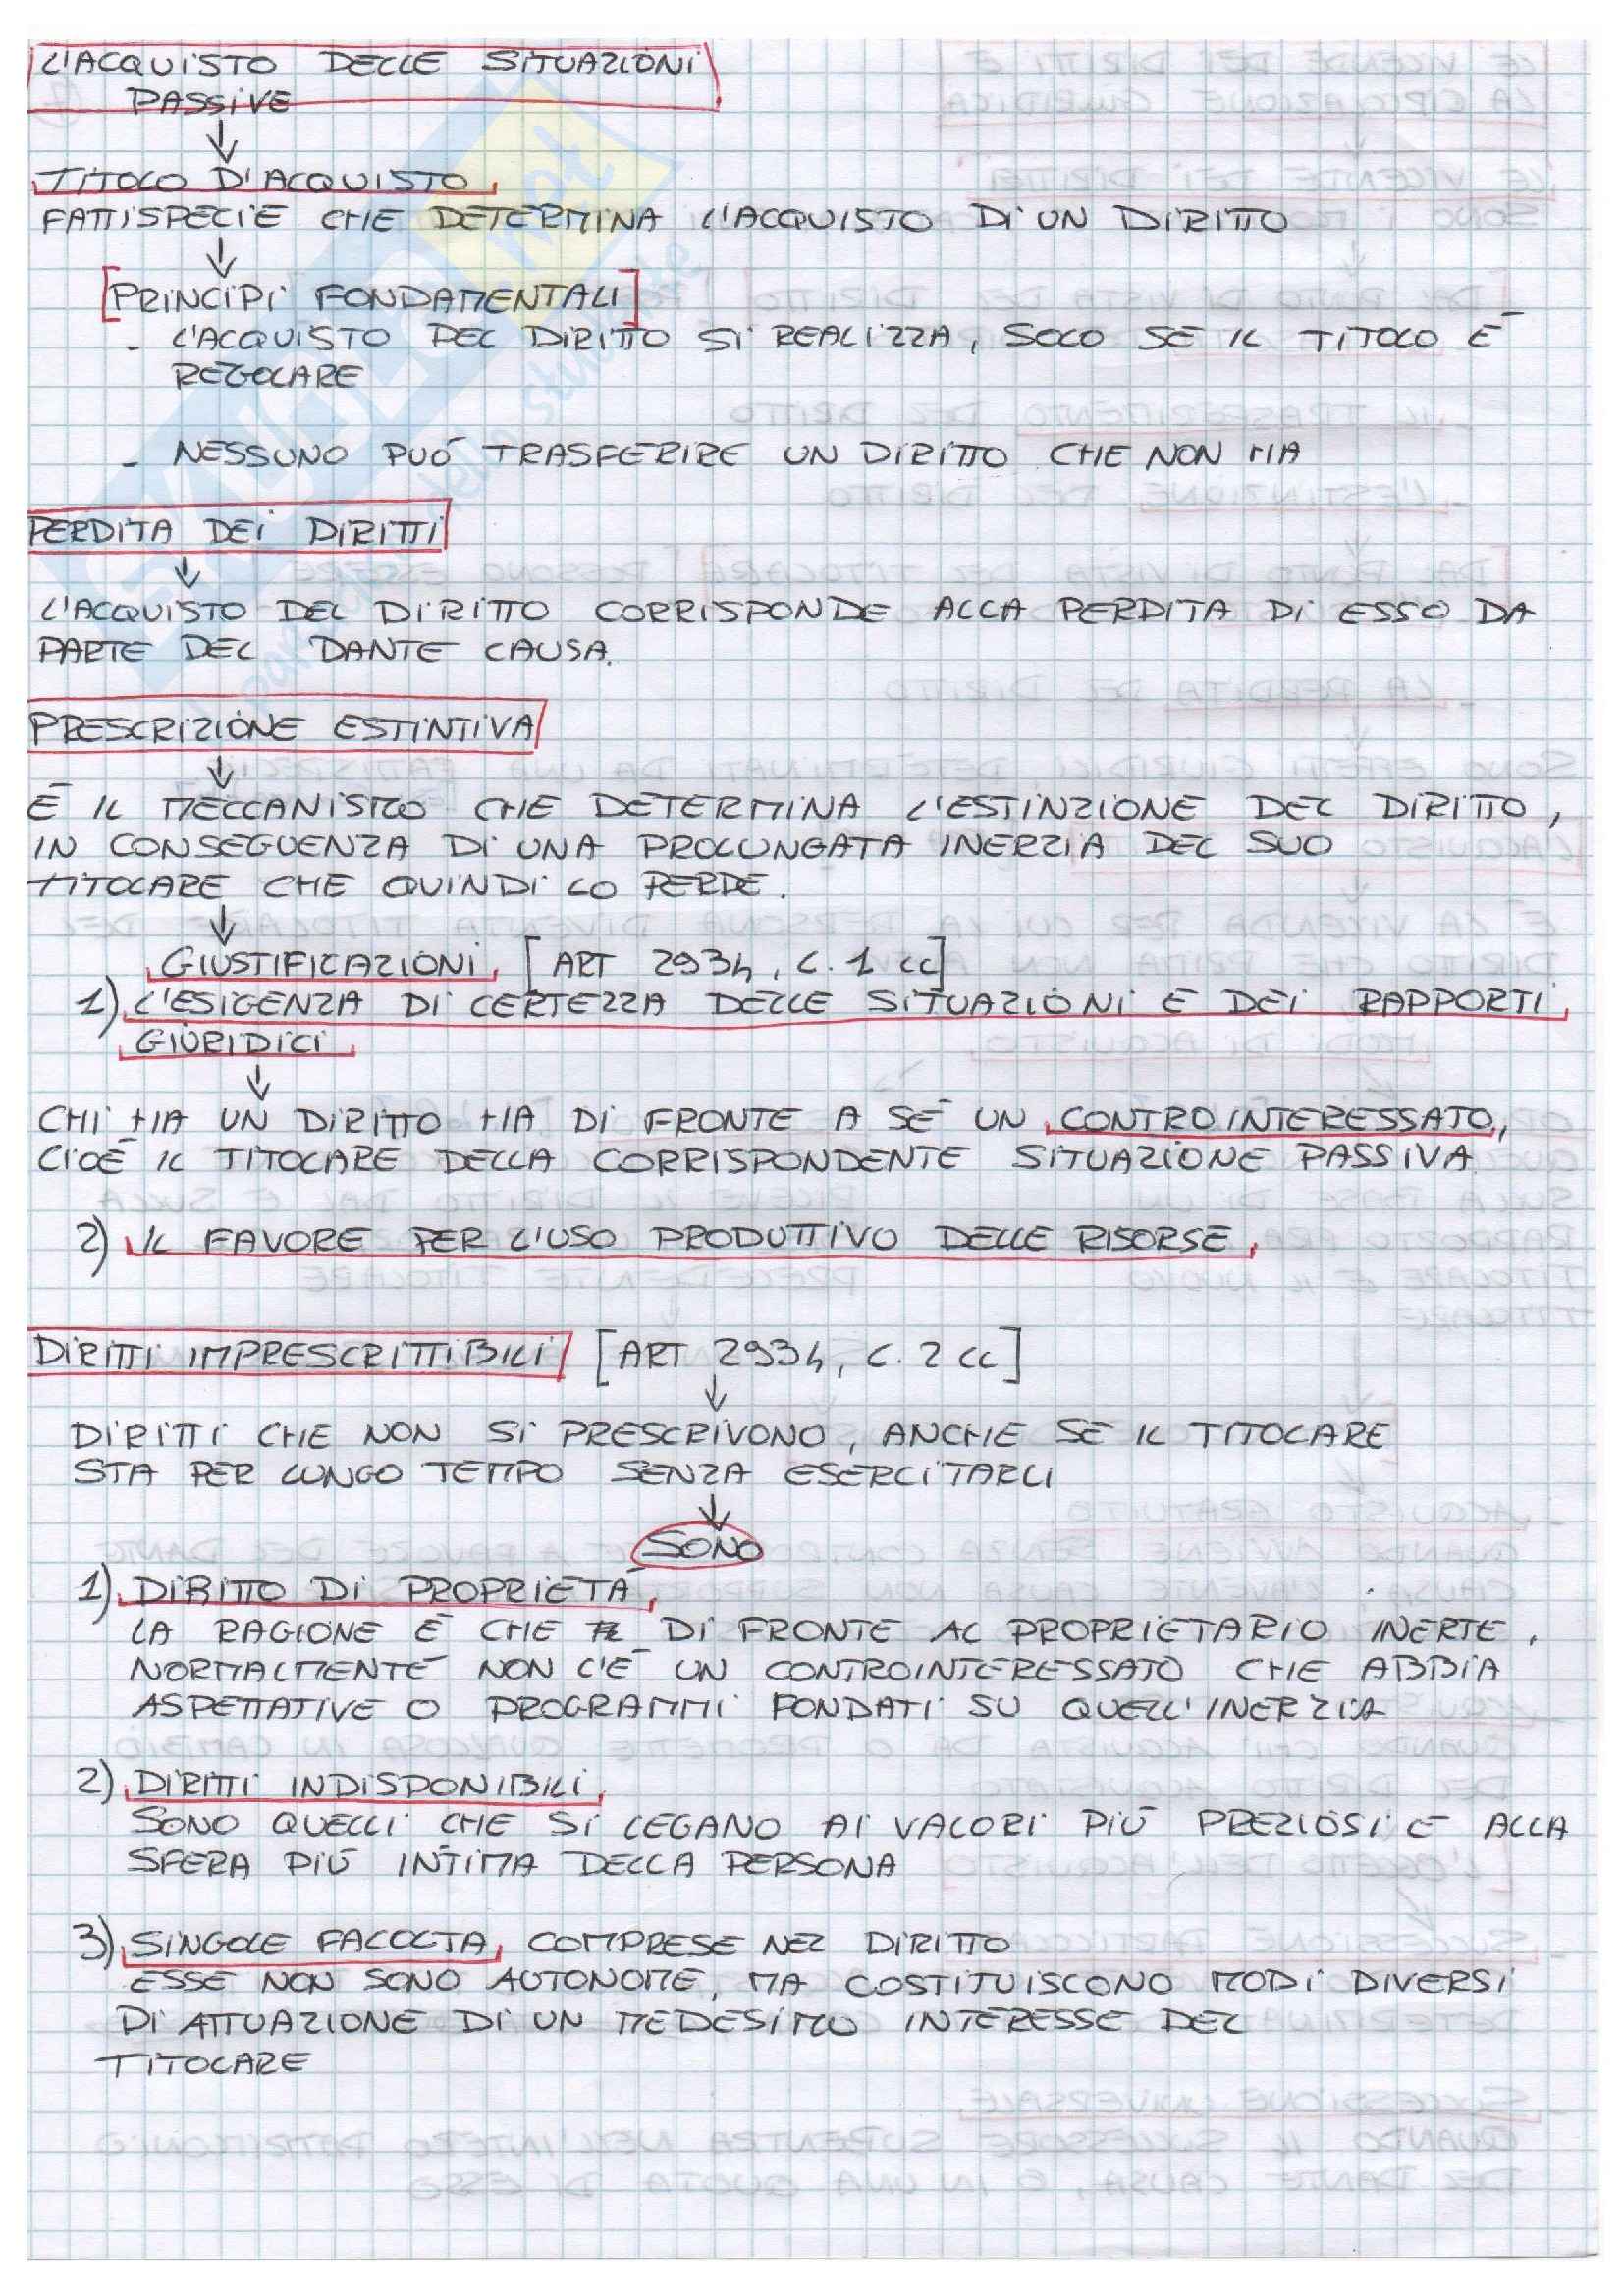 L'ACQUISTO DELLE SITUAZIONI
PASSIVE
TITOLO D'ACQUISTO
FATTISPECIE CHE DETERMINA L'ACQUISTO DI UN DIRITTO
[PRINCIPI FONDAMENTALI]
- L'ACQUISTO DEL DIRITTO SI REALIZZA, SOLO SE IL TITOLO È
REGOLARE
- NESSUNO PUÓ TRASFERIRE UN DIRITTO CHE NON HA
PERDITA DEI DIRITTI
L'ACQUISTO DEL DIRITTO CORRISPONDE ALLA PERDITA DI ESSO DA
PARTE DEL DANTE CAUSA.
PRESCRIZIONE ESTINTIVA
È IL MECCANISMO CHE DETERMINA L'ESTINZIONE DEL DIRITTO,
IN CONSEGUENZA DI UNA PROLUNGATA INERZIA DEL SUO
TITOLARE CHE QUINDI LO PERDE.
GIUSTIFICAZIONI [ART 2934, C. 1 CC]
1) L'ESIGENZA DI CERTEZZA DELLE SITUAZIONI E DEI RAPPORTI
GIURIDICI
CHI HA UN DIRITTO HA DI FRONTE A SÉ UN CONTROINTERESSATO,
CIOÈ IL TITOLARE DELLA CORRISPONDENTE SITUAZIONE PASSIVA
2) IL FAVORE PER L'USO PRODUTTIVO DELLE RISORSE
DIRITTI IMPRESCRITTIBILI [ART 2934, C. 2 CC]
DIRITTI CHE NON SI PRESCRIVONO, ANCHE SE IL TITOLARE
STA PER LUNGO TEMPO SENZA ESERCITARLI
SONO
1) DIRITTO DI PROPRIETÀ
LA RAGIONE È CHE DI FRONTE AL PROPRIETARIO INERTE,
NORMALMENTE NON C'È UN CONTROINTERESSATO CHE ABBIA
ASPETTATIVE O PROGRAMMI FONDATI SU QUELL'INERZIA
2) DIRITTI INDISPONIBILI
SONO QUELLI CHE SI LEGANO AI VALORI PIÙ PREZIOSI E ALLA
SFERA PIÙ INTIMA DELLA PERSONA
3) SINGOLE FACOLTÀ COMPRESE NEL DIRITTO
ESSE NON SONO AUTONOME, MA COSTITUISCONO MODI DIVERSI
DI ATTUAZIONE DI UN MEDESIMO INTERESSE DEL
TITOLARE